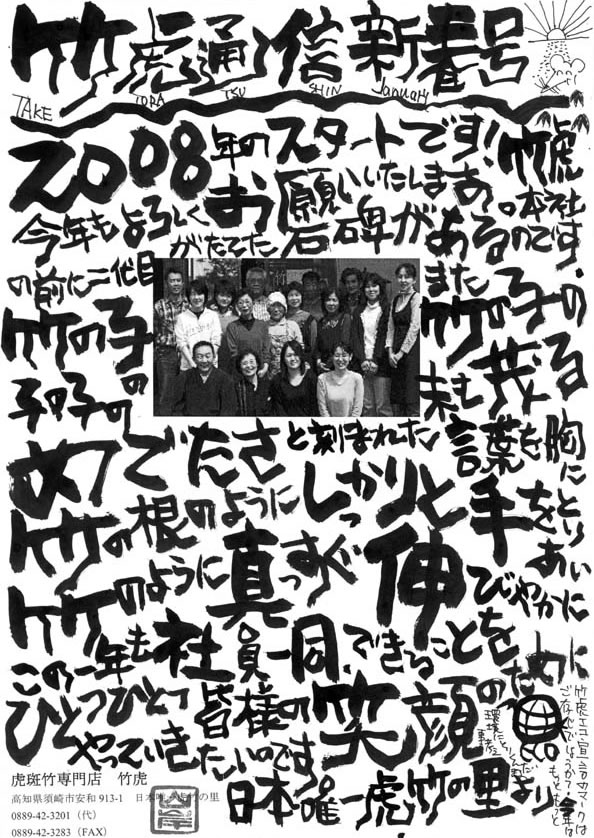 竹虎通信新春号
TAKE TORA TSU SHIN January
2008年のスタートです!竹虎
今年もよろしくお願いいたします。本社
の前に二代目がたてた石碑があるのです。
また
竹の子の竹の子の
子の子の末も茂る
めでたさと刻まれた言葉を胸に
竹の根のようにしっかりと手をとりあい
竹のように真っすぐ伸びやかに
この一年も社員一同、できることを
ひとつひとつ皆様の笑顔のために
やっていきたいのです。
日本唯一虎竹の里より
竹虎エコ宣言のマークは
ご存じでしょうか?今年は
もっともっと
環境に
虎斑竹専門店 竹虎
高知県須崎市安和 913-1 日本唯一虎竹の里
0889-42-3201(代)
0889-42-3283(FAX)